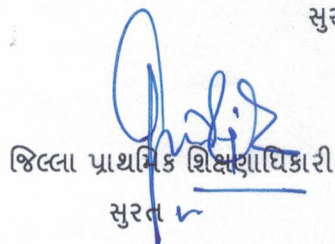 જિલ્લા પ્રાથમિક શિક્ષણાધિકારી
સુરત